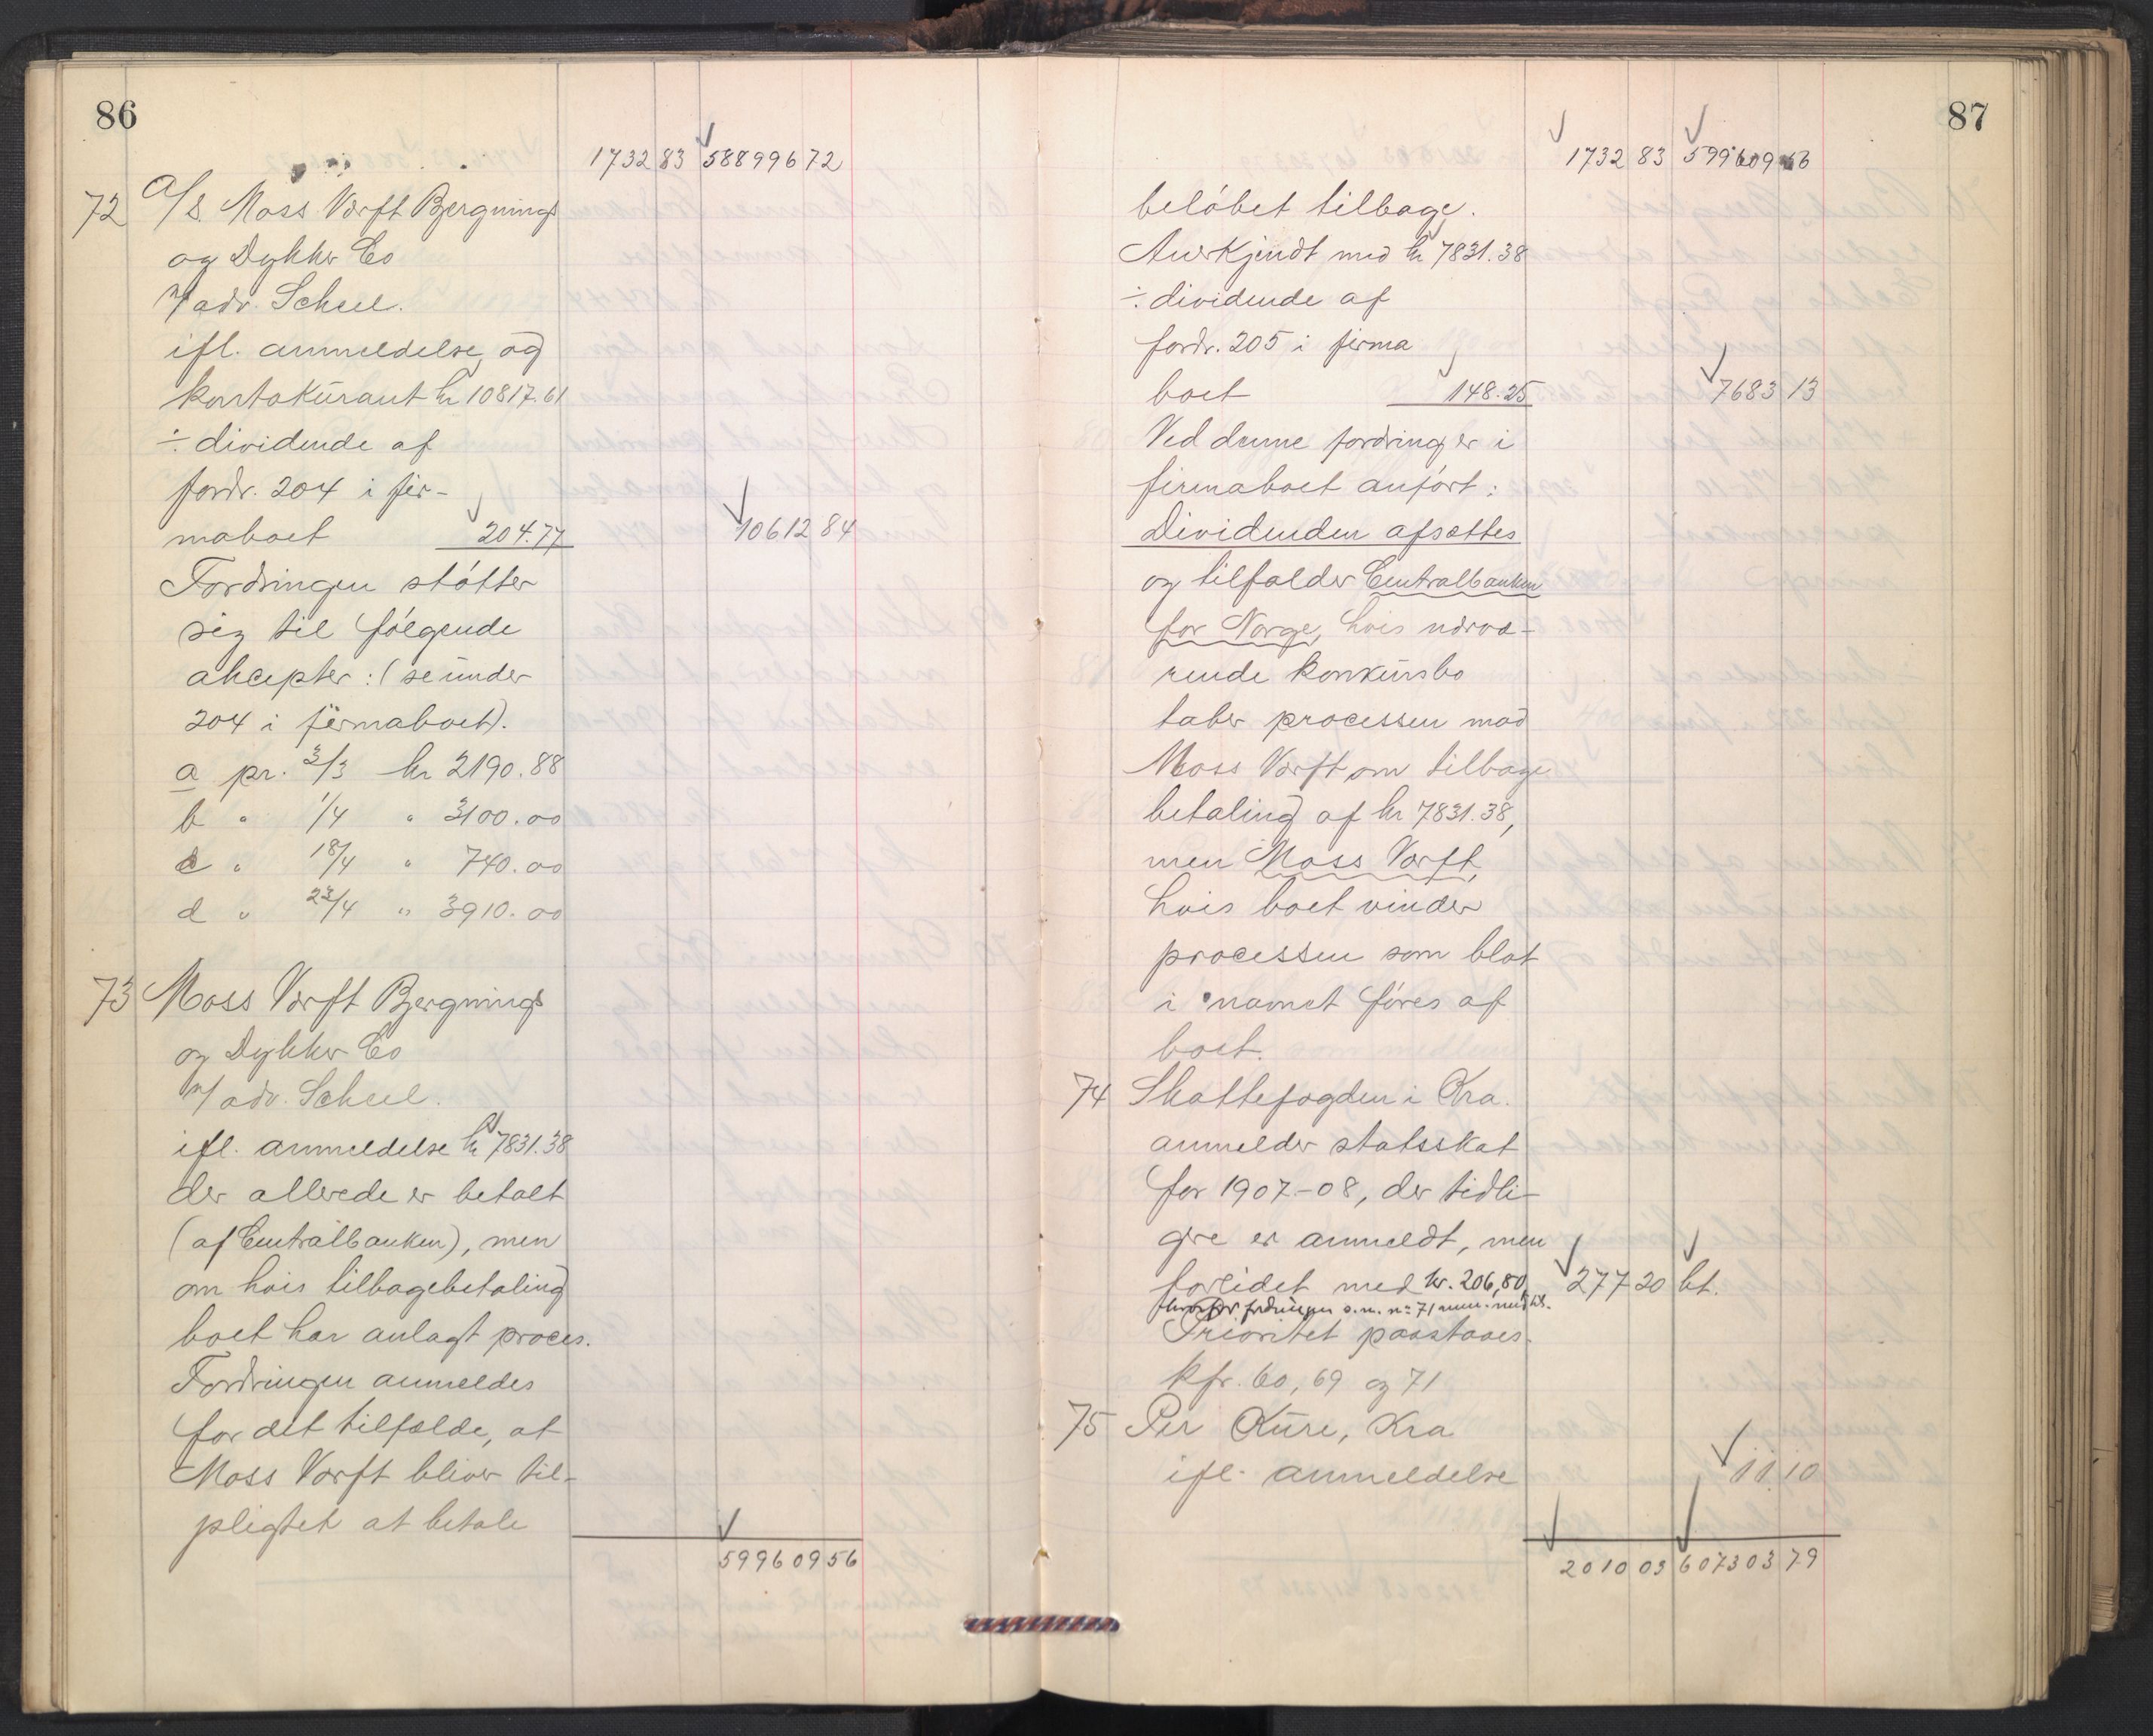 86
1732 83 588996 72
72 A/S. Moss Værft Bjergnings
og Dykker Co
v/ adv. Scheel.
ifl. anmeldelse og
kontokurant kr 10817.61
÷ dividende af
fordr. 204 i fir-
maboet 204.77 10612 84
Fordringen støtter
sig til følgende
akcepter: (se under
204 i firmaboet).
a pr. 3/3 kr 2190.88
b " 1/4 " 3100.00
c " 18/4 " 740.00
d " 23/4 " 3910.00
73 Moss Værft Bjergnings
og Dykker Co
v/ adv. Scheel.
ifl. anmeldelse kr 7831.38
der allerede er betalt
(af Centralbanken), men
om hvis tilbagebetaling
boet har anlagt proces.
Fordringen anmeldes
for det tilfælde, at
Moss Værft bliver til-
pligtet at betale
599609 56
87
1732 83 599609 56
beløbet tilbage.
Anerkjendt med kr 7831.38
÷ dividende af
fordr. 205 i firma
boet 148.25 7683 13
Ved denne fordring er i
firmaboet anført:
Dividenden afsættes
og tilfalder Centralbanken
for Norge, hvis nærvæ-
rende konkursbo
taber processen mod
Moss Værft om tilbage
betaling af kr 7831.38,
men Moss Værft,
hvis boet vinder
processen som blot
i navnet føres af
boet.
74 Skattefogden i Kra.
anmelder statsskat
for 1907-08, der tidli-
gre er anmeldt, men
forlidet med kr. 206,80, 277 20 bt.
hvorfor fordringen s.m. no 71 anm. med
Prioritet paastaaes.
kfr. 60, 69 og 71
75 Per Kure, Kra
ifl. anmeldelse 11 10
2010 03 607303 79